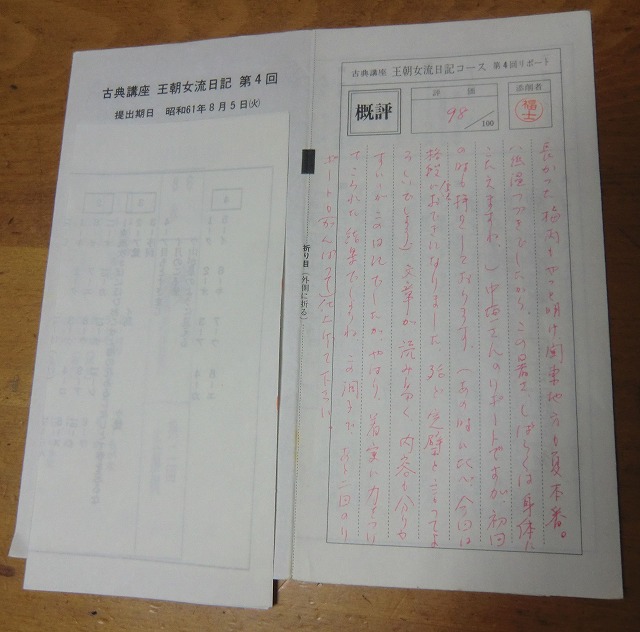 古典講座 王朝女流日記 第4回
提出期日 昭和61年8月5日(火)
折り目(外側に折る)
古典講座 王朝女流日記コース 第4回リポート
概評
評価
98/100
添削者
福士
長かった梅雨もやっと明け関東地方も夏本番。
この暑さ、しばらくは身体に
こたえますね。中西さんのリポートですが初回
の時も拝見しております。(あの時に比べ、今回は
格段におできになりました。殆ど完璧と言ってよ
ろしいでしょう)文章が読み易く内容も分りや
すいのがこの日記でしたがやはり、着実に力をつけ
てこられた結果でしょうね。この調子で、あと二回のリ
ポートもがんばって仕上げて下さい。